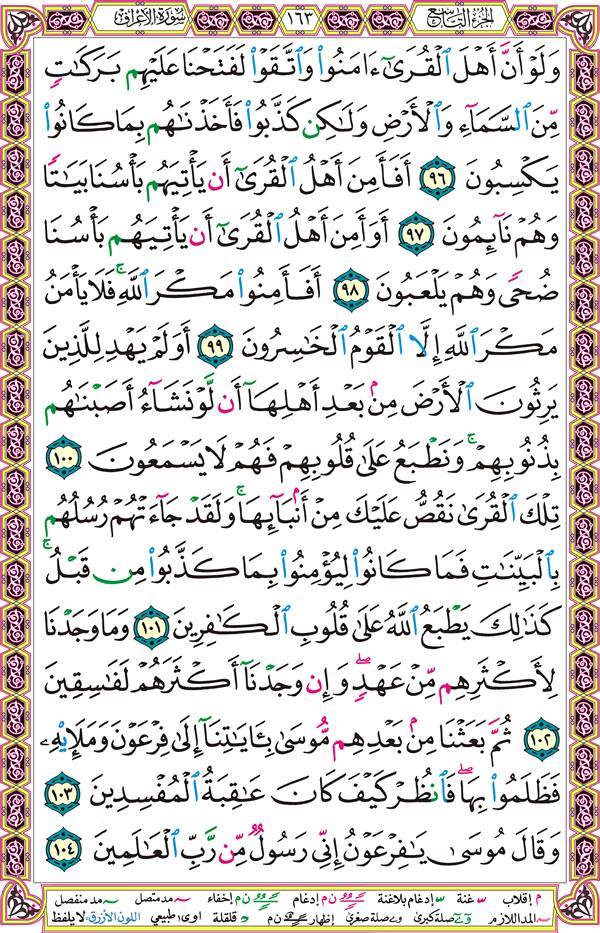 الجزء التاسع ١٦٣ سورة الأعراف
وَلَوْ أَنَّ أَهْلَ الْقُرَىٰٓ ءَامَنُوا وَاتَّقَوْا لَفَتَحْنَا عَلَيْهِم بَرَكَٰتٍ
مِّنَ السَّمَآءِ وَالْأَرْضِ وَلَٰكِن كَذَّبُوا فَأَخَذْنَٰهُم بِمَا كَانُوا
يَكْسِبُونَ ٩٦ أَفَأَمِنَ أَهْلُ الْقُرَىٰٓ أَن يَأْتِيَهُم بَأْسُنَا بَيَٰتًا
وَهُمْ نَآئِمُونَ ٩٧ أَوَأَمِنَ أَهْلُ الْقُرَىٰٓ أَن يَأْتِيَهُم بَأْسُنَا
ضُحًى وَهُمْ يَلْعَبُونَ ٩٨ أَفَأَمِنُوا مَكْرَ اللَّهِ ۚ فَلَا يَأْمَنُ
مَكْرَ اللَّهِ إِلَّا الْقَوْمُ الْخَٰسِرُونَ ٩٩ أَوَلَمْ يَهْدِ لِلَّذِينَ
يَرِثُونَ الْأَرْضَ مِنۢ بَعْدِ أَهْلِهَآ أَن لَّوْ نَشَآءُ أَصَبْنَٰهُم
بِذُنُوبِهِمْ ۚ وَنَطْبَعُ عَلَىٰ قُلُوبِهِمْ فَهُمْ لَا يَسْمَعُونَ ١٠٠
تِلْكَ الْقُرَىٰ نَقُصُّ عَلَيْكَ مِنْ أَنۢبَآئِهَا ۚ وَلَقَدْ جَآءَتْهُمْ رُسُلُهُم
بِالْبَيِّنَٰتِ فَمَا كَانُوا لِيُؤْمِنُوا بِمَا كَذَّبُوا مِن قَبْلُ ۚ
كَذَٰلِكَ يَطْبَعُ اللَّهُ عَلَىٰ قُلُوبِ الْكَٰفِرِينَ ١٠١ وَمَا وَجَدْنَا
لِأَكْثَرِهِم مِّنْ عَهْدٍ ۖ وَإِن وَجَدْنَآ أَكْثَرَهُمْ لَفَٰسِقِينَ
١٠٢ ثُمَّ بَعَثْنَا مِنۢ بَعْدِهِم مُّوسَىٰ بِـَٔايَٰتِنَآ إِلَىٰ فِرْعَوْنَ وَمَلَإِيْهِۦ
فَظَلَمُوا بِهَا ۖ فَانظُرْ كَيْفَ كَانَ عَٰقِبَةُ الْمُفْسِدِينَ ١٠٣
وَقَالَ مُوسَىٰ يَٰفِرْعَوْنُ إِنِّي رَسُولٌ مِّن رَّبِّ الْعَٰلَمِينَ ١٠٤
م إقلاب س غنة س إدغام بلاغنة ن م إدغام ن م إخفاء مد متصل مد منفصل
المد اللازم صلة كبرى صلة صغرى إظهار ن م قلقلة اوى طبيعي اللون الأزرق: لا يلفظ